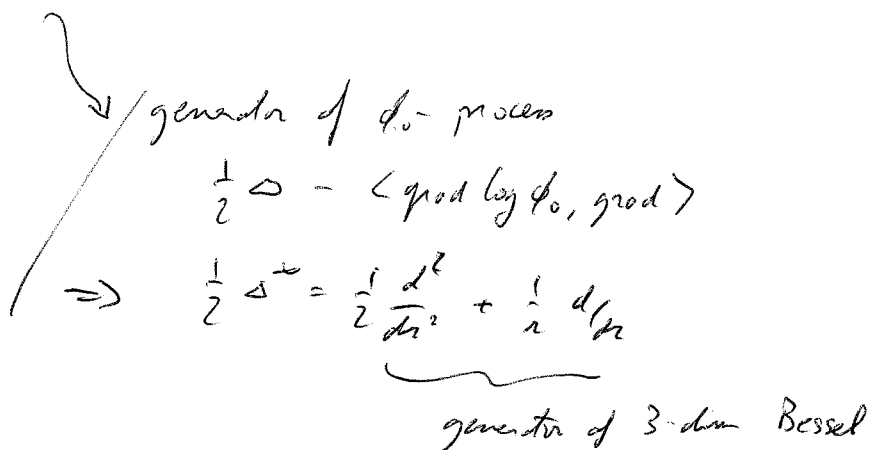 generator of ϕ₀- process
½ Δ - < grad log ϕ₀, grad >
⇒ ½ Δ~ = ½ d²/dr² + 1/r d/dr
generator of 3-dim Bessel